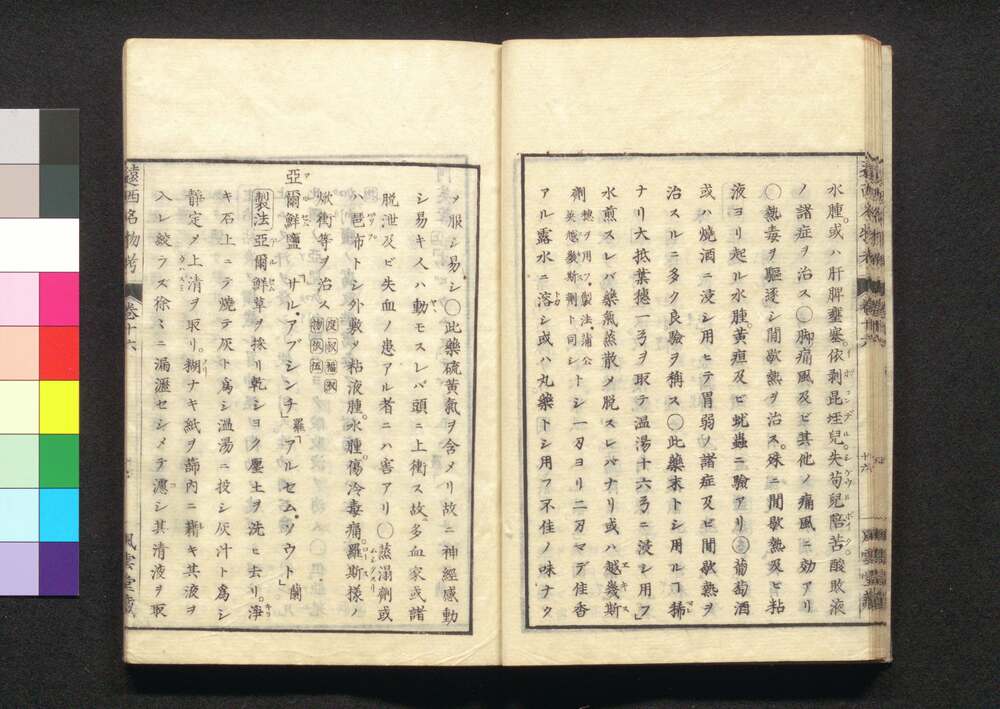 水腫。或ハ肝脾壅塞。依剥昆垤兒。失苟兒陪苦。酸敗液
イポコンデル。シケウルボイク。
ノ諸症ヲ治ス〇脚痛風及ビ其他ノ痛風ニ効アリ
〇熱毒ヲ驅逐シ間歇熱ヲ治ス。殊ニ間歇熱及ビ粘
液ヨリ起ル水腫。黄疸及ビ蚘蟲ニ驗アリ〇葡萄酒
或ハ燒酒ニ浸シ用ヒテ胃弱ノ諸症及ビ間歇熱ヲ
治スルニ多ク良驗ヲ稱ス〇此藥末トシ用ルヿ稀
ナリ大抵葉穂一弓ヲ取テ温湯十六弓ニ浸シ用フ」
水煎スレバ藥氣蒸散メ脱スレバナリ或ハ越幾斯
エキス
劑 穂ヲ用フ。製法。蒲公英越幾斯劑ト同シ トシ一刃ヨリ二刃マデ佳香
アル露水ニ溶シ或ハ丸藥トシ用フ不佳ノ味ナク
メ服シ易シ〇此藥硫黄氣ヲ含メリ故ニ神經感動
シ易キ人ハ動モスレバ頭ニ上衝ス故ニ多血家或諸
脱泄及ビ失血ノ患アル者ニハ害アリ〇蒸溻劑或
ハ芭布トシ外敷メ粘液腫。水腫。傷冷毒痛。羅斯様ノ
焮衝等ヲ治ス
亞爾鮮鹽 「サル・アブシンチ」羅「アルセム・ソウト」蘭
製法 亞爾鮮草ヲ採リ乾シヨク塵土ヲ洗ヒ去リ。淨
キ石上ニテ燒テ灰ト爲シ温湯ニ投シ灰汁ト爲シ
靜定メ上清ヲ取リ。糊ナキ紙ヲ篩内ニ藉キ其液ヲ
入レ絞ラズ徐々ニ漏瀝セシメテ濾シ其清液ヲ取
遠西名物考
卷十六
風雲堂藏